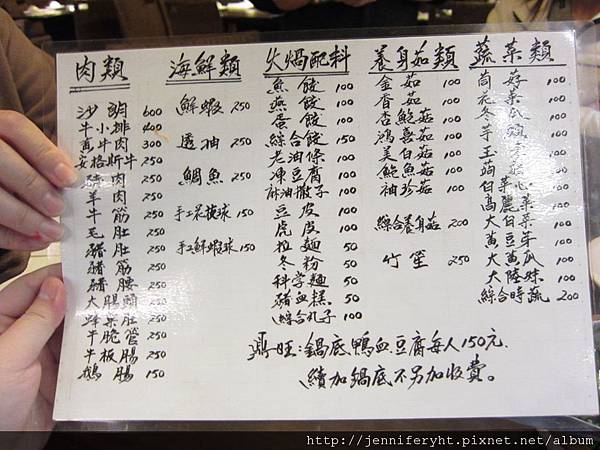 肉類
沙朗 600
牛小排 400
真牛肉 300
安格斯牛 250
豬肉 250
羊肉 250
牛筋 250
毛肚 250
豬肚 250
豬筋 250
豬腰 250
大腸頭 250
蜂巢肚 250
牛脆管 250
牛板腸 250
鵝腸 150
海鮮類
鮮蝦 250
透抽 250
鯛魚 250
手工花枝球 150
手工鮮蝦球 150
火鍋配料
魚餃 100
燕餃 100
蛋餃 100
綜合餃 150
老油條 100
凍豆腐 100
麻油撒子 100
豆皮 100
虎皮 100
拉麵 50
冬粉 50
科學麵 50
豬血糕 50
綜合丸子 100
養身菇類
金茹 100
香茹 100
杏鮑菇 100
鴻喜茹 100
美白菇 100
鮑魚菇 100
袖珍菇 100
綜合養身菇 200
竹笙 250
蔬菜類
茼蒿 100
100
100
芋頭 100
玉米 100
100
100
高麗菜 100
大白菜 100
黃豆芽 100
大黃瓜 100
大陸妹 100
綜合時蔬 200
鼎旺:鍋底,鴨血豆腐每人150元.
續加鍋底不另加收費。
http://jenniferyht.pixnet.net/album